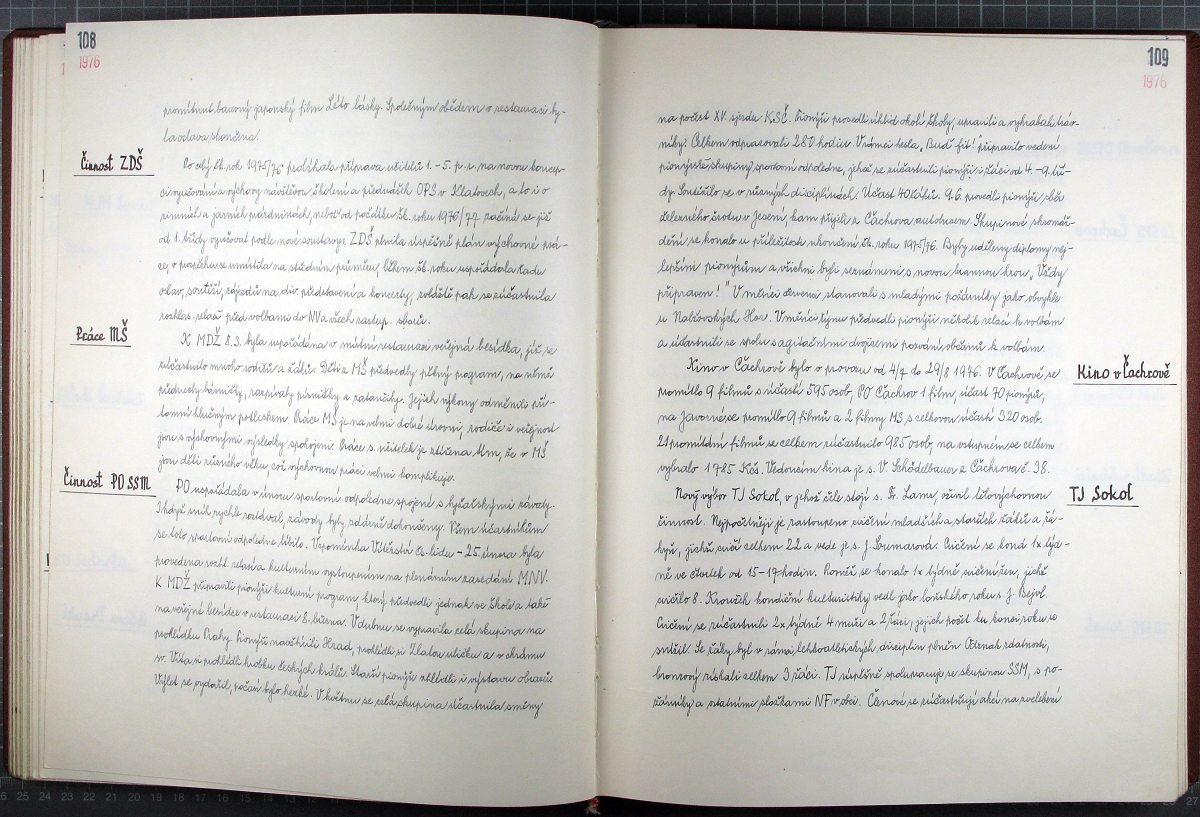 108
1976
promítnut barevný japonský film Léto lásky. Společným obědem v restauraci by-
la oslava skončena.
Činnost ZDŠ
Po celý šk. rok 1975/76 probíhala příprava učitelů 1. - 5. p. r. na novou koncep-
ci vyučování a výchovy návštěvou školení a přednášek OPS v Klatovech, a to i o
zimních a jarních prázdninách, neboť od počátku šk. roku 1976/77 začíná se již
od 1. třídy vyučovat podle nové soustavy. ZDŠ plnila úspěšně plán výchovné prá-
ce, v prospěchu se umístila na středním průměru, během šk. roku uspořádala řadu
oslav, soutěží, zájezdů na div. představení a koncerty, zvláště pak se zúčastnila
rozhlas. relací před volbami do NV a všech zastup. sborů.
Práce MŠ
K MDŽ 8.3. byla uspořádána v místní restauraci veřejná besídka, jíž se
zúčastnilo mnoho rodičů a žáků. Děti z MŠ předvedly pěkný program, na němž
přednesly básničky, zazpívaly písničky a zatančily. Jejich výkony odměnili pří-
tomní hlučným potleskem. Práce MŠ je na velmi dobré úrovni, rodiče i veřejnost
jsou s výchovnými výsledky spokojeni. Práce s. učitelek je ztížena tím, že v MŠ
jsou děti různého věku, což výchovnou práci velmi komplikuje.
Činnost PO SSM
PO uspořádala v únoru sportovní odpoledne spojené s lyžařskými závody.
I když sníh rychle roztával, závody byly zdárně dokončeny. Všem účastníkům
se toto sportovní odpoledne líbilo. Vzpomínka Vítězství čs. lidu - 25. února byla
provedena rozhl. relací a kulturním vystoupením na plenárním zasedání MNV.
K MDŽ připravili pionýři kulturní program, který předvedli jednak ve škole a také
na veřejné besídce v restauraci 8. března. V dubnu se vypravila celá skupina na
prohlídku Prahy. Pionýři navštívili Hrad, prohlédli si Zlatou uličku a v chrámu
sv. Víta si prohlédli hrobku českých králů. Starší pionýři zhlédli i výstavu obrazů.
Výlet se vydařil, počasí bylo hezké. V květnu se celá skupina účastnila směny
109
1976
na počest XV. sjezdu KSČ. Pionýři provedli úklid okolí školy, upravili a vyhrabali tráv-
níky. Celkem odpracovali 280 hodin. V rámci testu „Buď fit" připravilo vedení
pionýrské skupiny sportovní odpoledne, jehož se zúčastnili pionýři i žáci od 4. - 9. tří-
dy. Soutěžilo se v různých disciplínách. Účast 40 žáků. 9.6. provedli pionýři sběr
železného šrotu v Jesení, kam přijeli z Čachrova autobusem. Skupinové shromáž-
dění se konalo u příležitosti ukončení šk. roku 1975/76. Byly uděleny diplomy nej-
lepším pionýrům a všichni byli seznámeni s novou brannou hrou „Vždy
připraven!" V měsíci červenci stanovali s mladými požárníky jako obvykle
u Nalžovských Hor. V měsíci říjnu předvedli pionýři několik relací k volbám
a účastnili se spolu s agitačními dvojicemi pozvání občanů k volbám.
Kino v Čachrově
Kino v Čachrově bylo v provozu od 4/7 do 29/8 1976. V Čachrově se
promítlo 9 filmů s účastí 595 osob, PO Čachrov 1 film, účast 70 pionýrů,
na Javorné se promítlo 9 filmů a 2 filmy MŠ s celkovou účastí 320 osob.
21 promítání filmů se celkem zúčastnilo 985 osob, na vstupném se celkem
vybralo 1785 Kčs. Vedoucím kina je s. V. Schödelbauer z Čachrova č. 38.
TJ Sokol
Nový výbor TJ Sokol, v jehož čele stojí s. Fr. Lamr, oživil tělovýchovnou
činnost. Nejpočetněji je zastoupeno cvičení mladšího a starších žáků a žá-
kyň, jichž cvičí celkem 22 a vede je s. J. Soumarová. Cvičení se koná 1x týd-
ně ve čtvrtek od 15-17 hodin. Rovněž se konalo 1x týdně cvičení žen, jichž
cvičilo 8. Kroužek kondiční kulturistiky vedl jako loňského roku s. J. Bejvl.
Cvičení se zúčastnili 2x týdně 4 muži a 2 žáci, jejich počet ku konci roku se
snížil. Se žáky byl v rámci lehkoatletických disciplin plněn Odznak zdatnosti,
bronzový získali celkem 3 žáci. TJ úspěšně spolupracuje se skupinou SSM, s po-
žárníky a ostatními složkami NF v obci. Členové se zúčastňují akcí na zvelebení